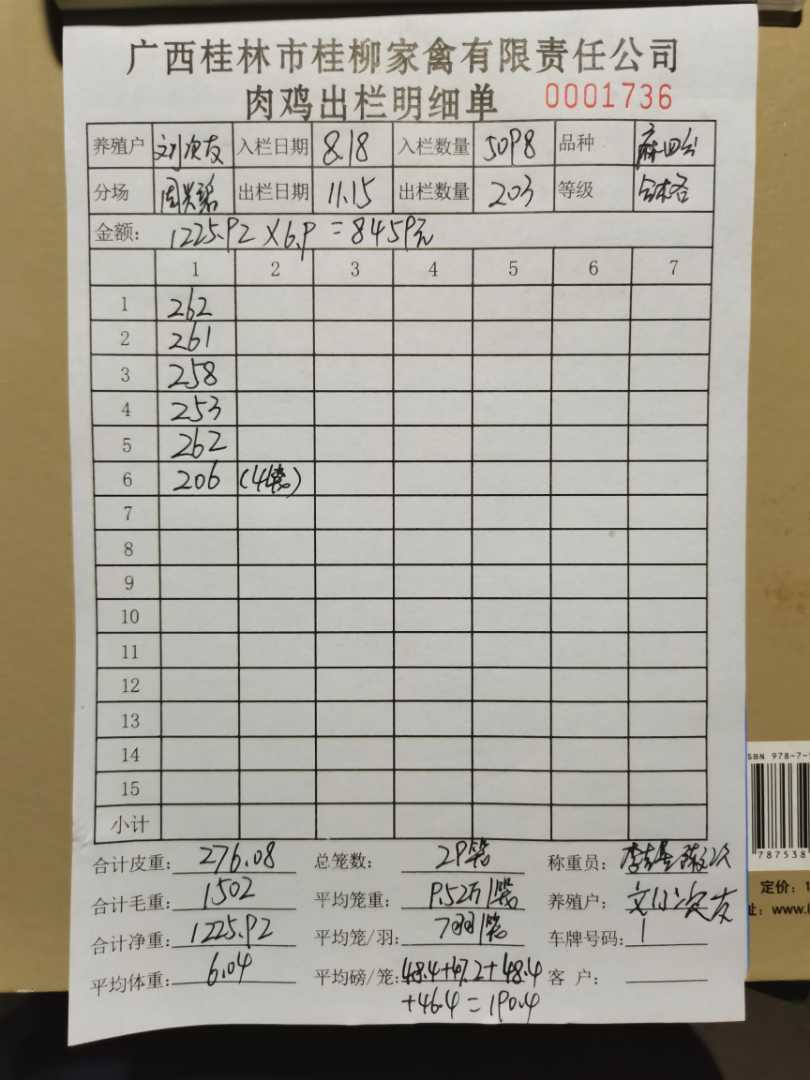 广西桂林市桂柳家禽有限责任公司
肉鸡出栏明细单 0001736
养殖户 刘次友 入栏日期 8.18 入栏数量 5098 品种 麻四
分场 周兴 出栏日期 11.15 出栏数量 203 等级 合格
金额: 1225.92×6.9=8459元
1 2 3 4 5 6 7
1 262
2 261
3 258
4 253
5 262
6 206 (4笼)
7
8
9
10
11
12
13
14
15
小计
合计皮重: 276.08 总笼数: 29笼 称重员:
合计毛重: 1502 平均笼重: 9.52斤/笼 养殖户: 刘次友
合计净重: 1225.92 平均笼/羽: 7羽/笼 车牌号码: /
平均体重: 6.04 平均磅/笼: 48.4+47.2+48.4 客 户:
+46.4=190.4
ISBN 978-7-
787538
定价: 1
址: www.